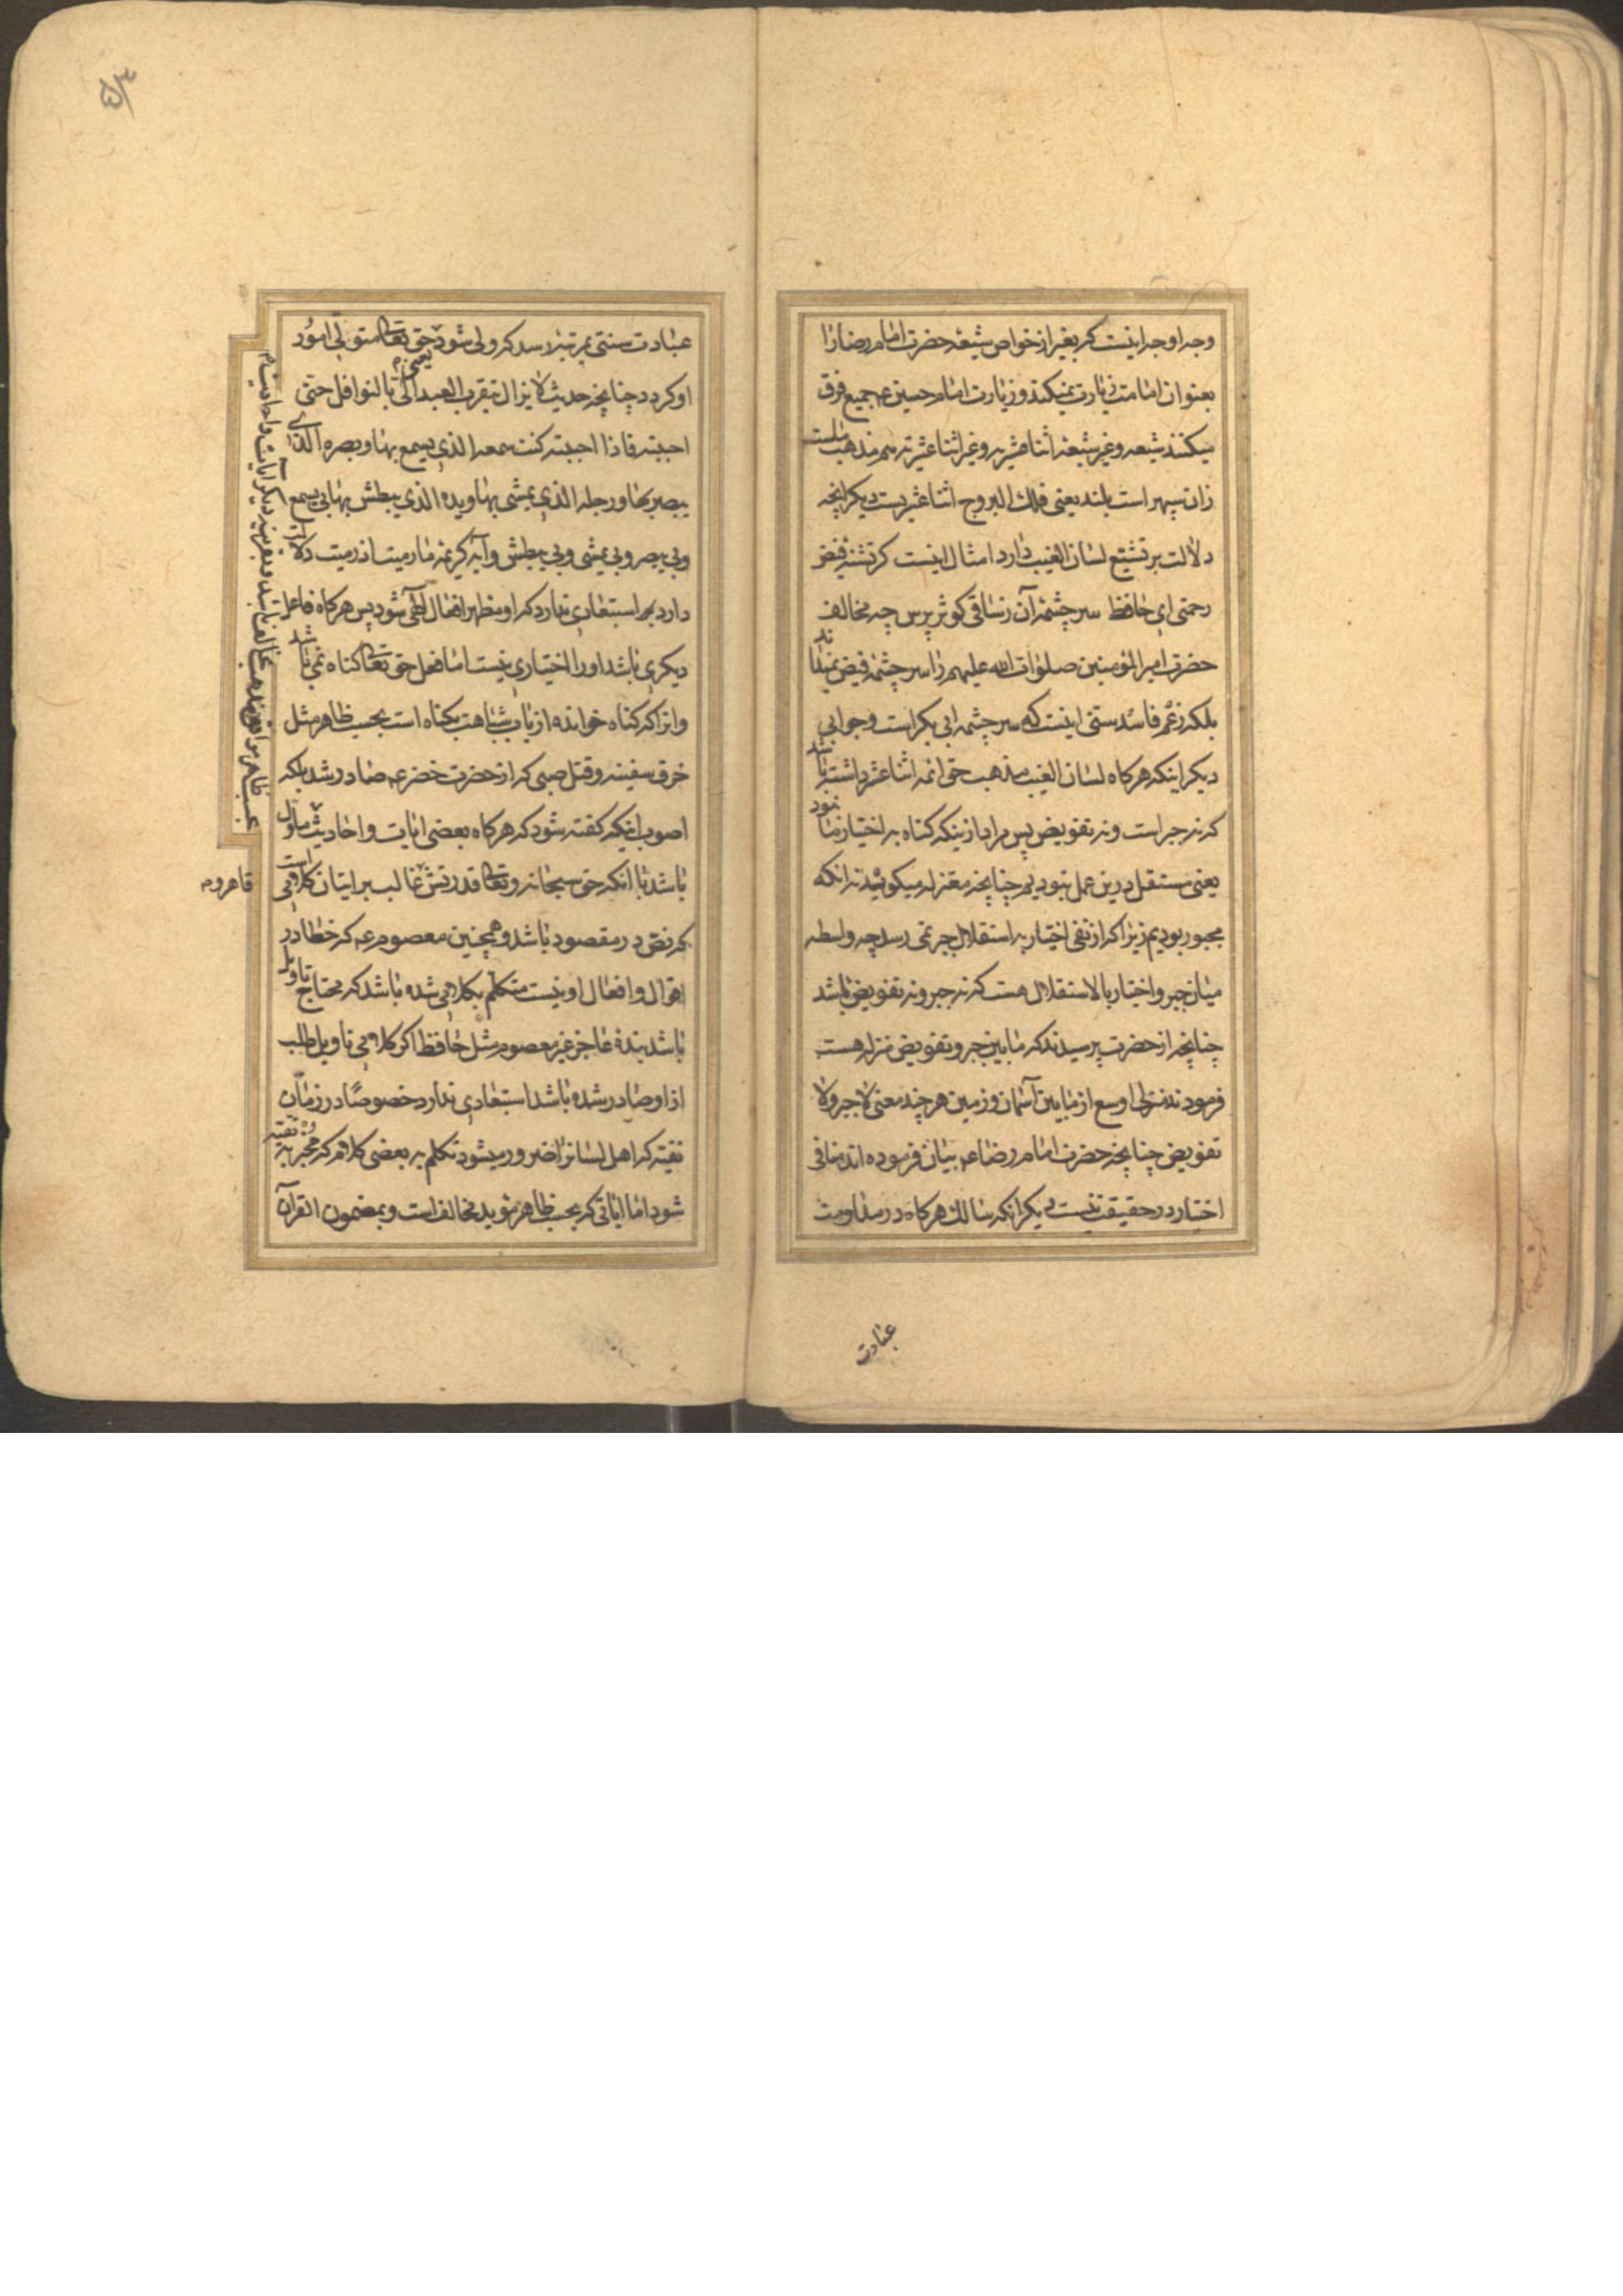 وجه اوجه اینست که بغیر از خواص شیعه حضرت امام رضا را
بعنوان امامت زیارت نمیکنند و زیارت امام حسین ع جمیع فرق
میکنند شیعه و غیر شیعه اثنا عشریه و غیر اثنا عشریه هم مذهب
زان سپهر است بلند یعنی فلک البروج اثنا عشریست دیگر آنچه
دلالت بر تشیع لسان الغیب دارد امثال اینست که تشنه فیض
رحمتی ای حافظ سرچشمه آن ز ساقی کوثر پرس چه مخالف
حضرت امیر المؤمنین صلوات الله علیهم را سرچشمه فیض نمیداند
بلکه زعم فاسد سنی اینست که سرچشمه ابی بکر است و جوابی
دیگر اینکه هرکاه لسان الغیب مذهب حق ائمه اثنا عشر داشته باشد
که نه جبر است و نه تفویض پس مراد از نیکه کناه به اختیار ما نبود
یعنی مستقل درین عمل نبودیم چنانچه معتزله میکویند نه انکه
مجبور بودیم زیرا که از نفی اختیار به استقلال جبر نمی رسد چه واسطه
میان جبر و اختیار بالاستقلال هست که نه جبر و نه تفویض باشد
چنانچه از حضرت پرسیدند که ما بین جبر و تفویض منزله هست
فرمودند منزلی اوسع از ما بین آسمان و زمین هر چند معنی لا جبر ولا
تفویض چنانچه حضرت امام رضا ع بیان فرموده اند منافی
اختیار در حقیقت نیست دیگر انکه سالک هرکاه در مداومت
عبادت
عبادت سنتی بمرتبه رسد که ولی شود یعنی حق تعالی متولی امور
او کردد چنانچه حدیث لا یزال یتقرب العبد الی بالنوافل حتی
احببته فاذا احببته کنت سمعه الذی یسمع بها و بصره الذی
یبصر بها و رجله الذی یمشی بها و یده الذی یبطش بها بی یسمع
وبی یبصر وبی یمشی وبی یبطش و آیه کریمه ما رمیت اذ رمیت دلالت
دارد بر استبعادی ندارد که او مظهر افعال الهی شود پس هرکاه فاعل
دیکری باشد او را اختیاری نیست اما فعل حق تعالی کناه نمی باشد
و انرا که کناه خوانده از باب شباهت بکناه است بحسب ظاهر مثل
خرق سفینه و قتل صبی که از حضرت خضر ع صادر شد بلکه
اصوب اینکه کفته شود که هرکاه بعضی ایات و احادیث ماول
باشد با انکه حق سبحانه و تعالی قدرتش غالب بر اتیان کلامی است
که نص در مقصود باشد و همچنین معصوم ع که خطا در
اقوال و افعال او نیست متکلم بکلامی شده باشد که محتاج تاویل
باشد بنده عاجز غیر معصوم مثل حافظ اکر کلامی تاویل طلب
از او صادر شده باشد استبعادی ندارد خصوصا در زمان
تقیه که اهل لسانرا ضرور میشود تکلم به بعضی کلام که منجر به تقیه
شود اما ایاتی که بحسب ظاهر مؤید مخالف است و بمضمون القرآن
قاهر
۵۳